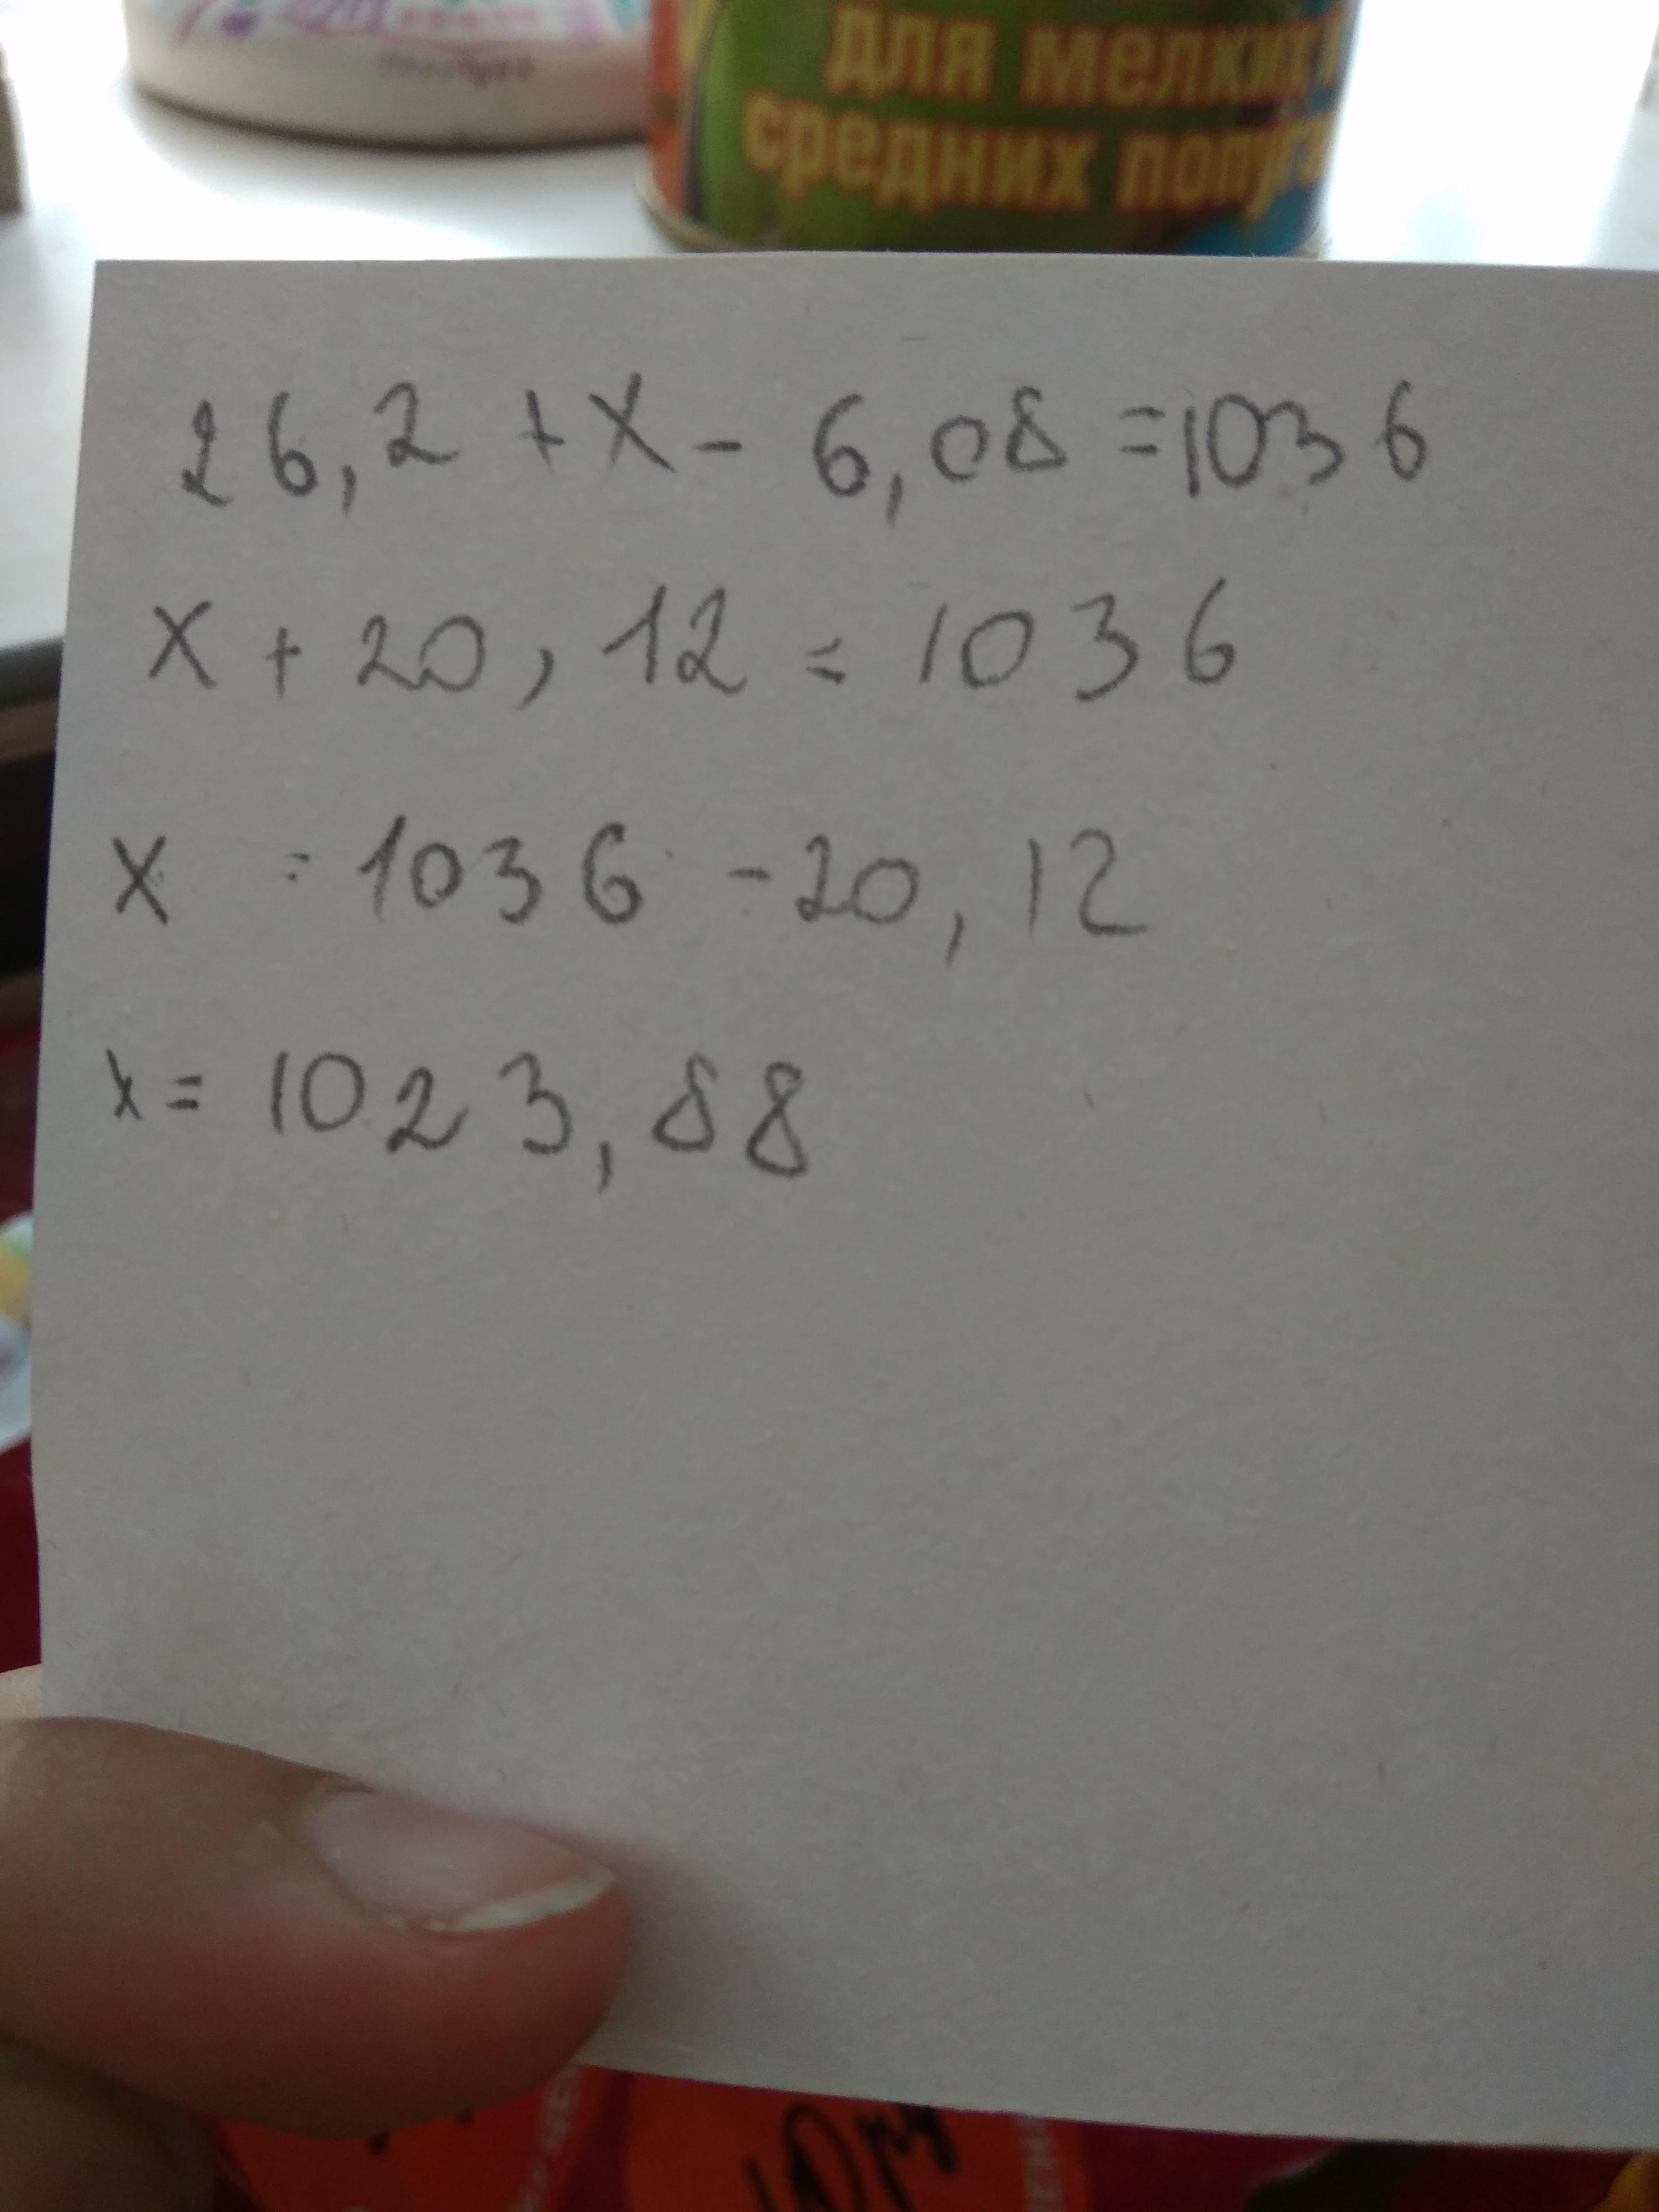 для мелких и
средних попуга
26,2 + x - 6,08 = 1036
x + 20,12 = 1036
x = 1036 - 20,12
x = 1023,88